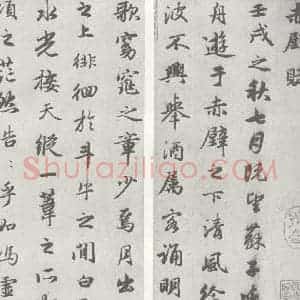 赤壁賦
壬戌之秋七月既望蘇子與
舟遊于赤壁之下清風徐
波不興舉酒属客誦明
歌窈窕之章少焉月出
之上徘徊於斗牛之間白
水光接天縱一葦之所
頃之茫然浩〻乎如馮虛
Shufaziliao.com